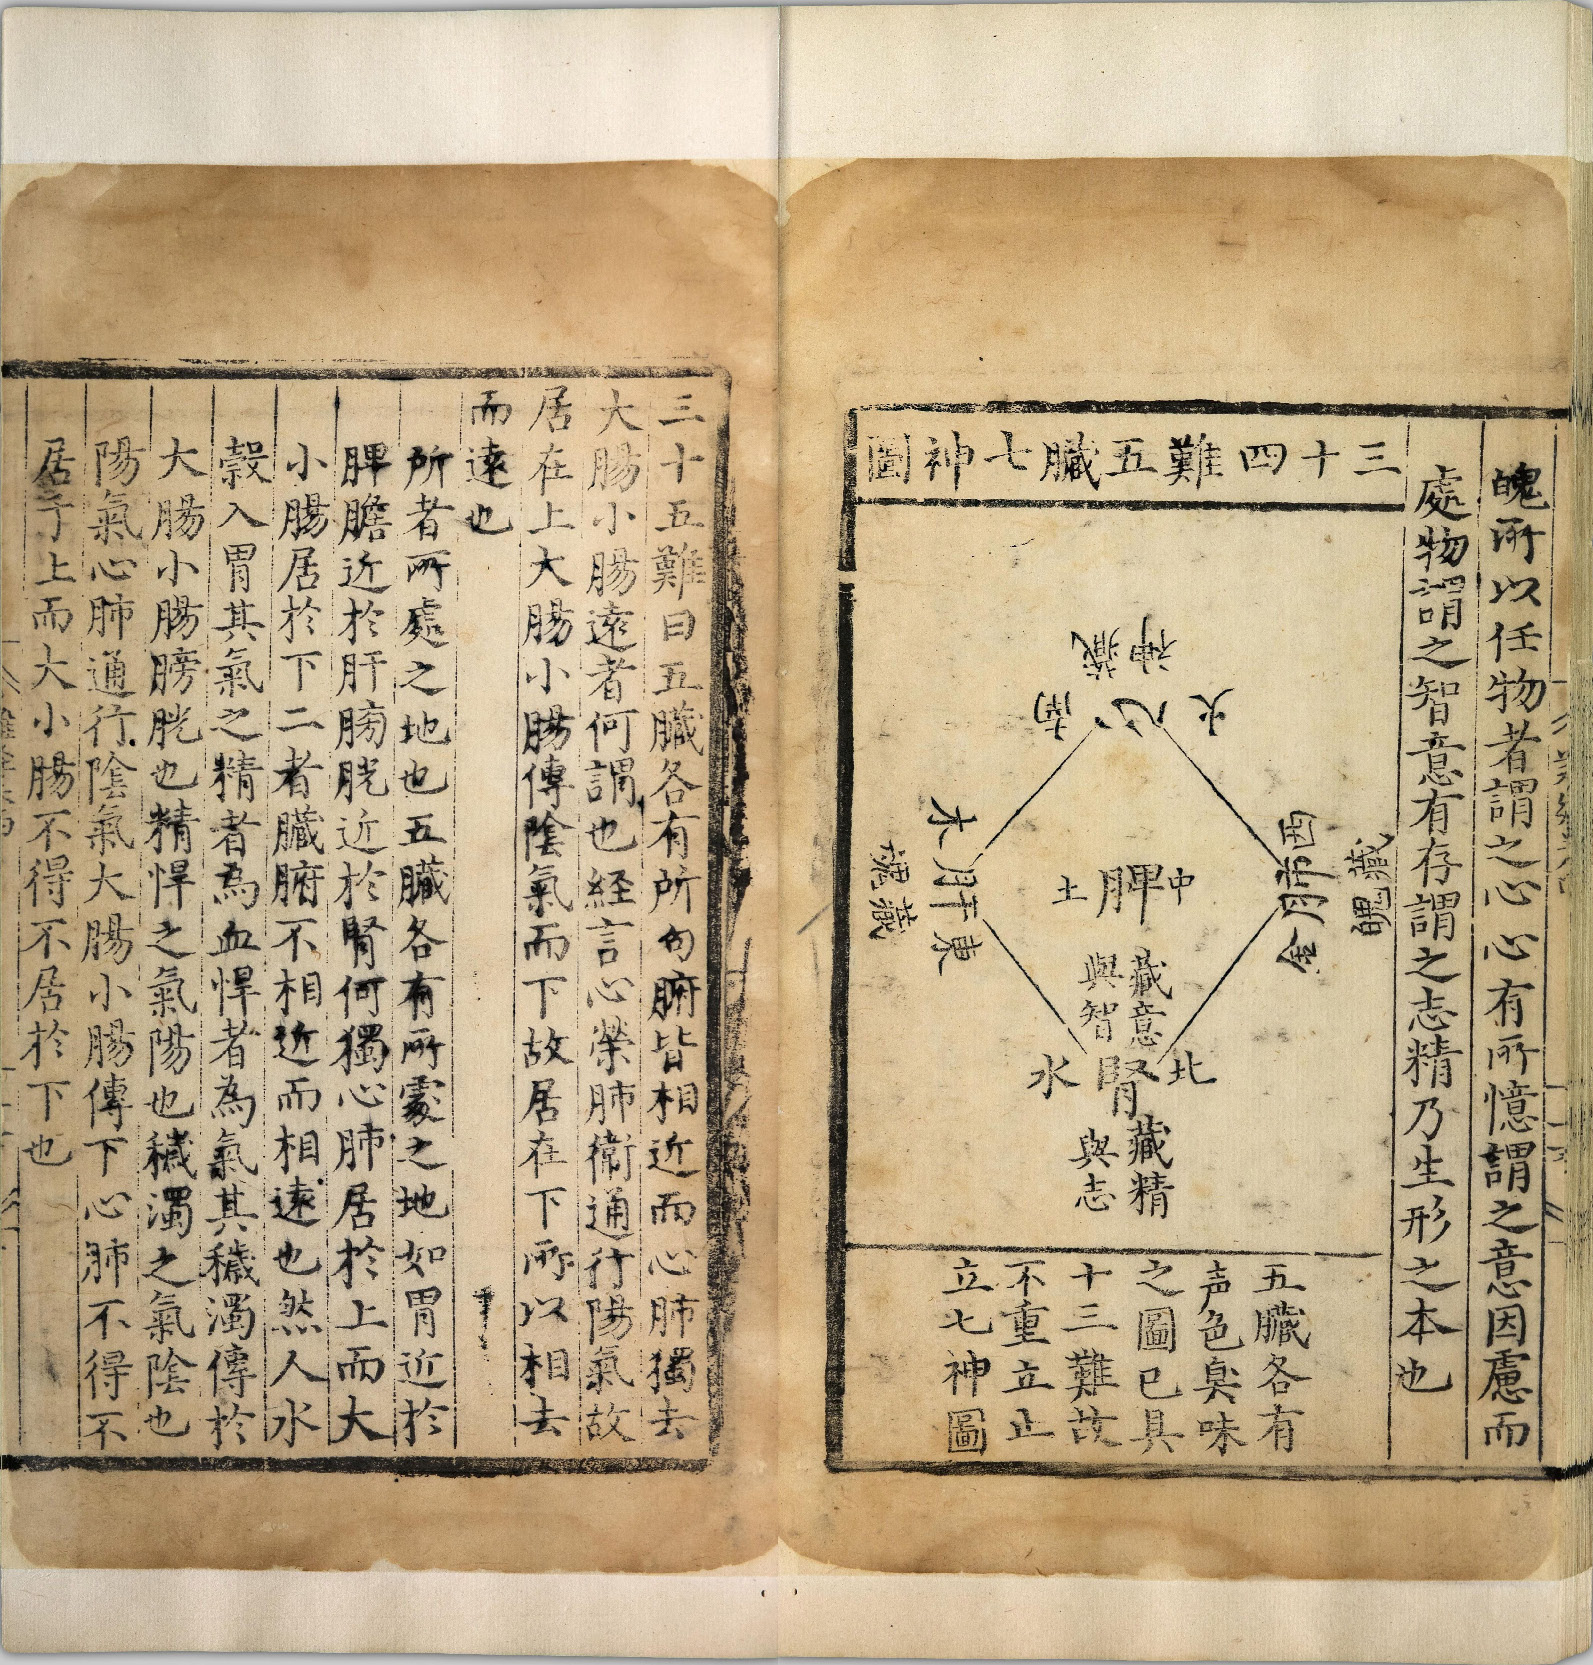 魄所以任物者謂之心心有所憶謂之意因慮而
處物謂之智意有存謂之志精乃生形之本也
三十四難五臟七神圖
神藏
南心火
西肺金
魄藏
中脾土
藏意
與智
木肝東
魂藏
北腎水
藏精
與志
五臟各有
声色臭味
之圖已具
十三難故
不重立止
立七神圖
三十五難曰五臟各有所句腑皆相近而心肺獨去
大腸小腸遠者何謂也経言心榮肺衛通行陽氣故
居在上大腸小腸傳陰氣而下故居在下所以相去
而遠也
所者所處之地也五臟各有所處之地如胃近於
脾膽近於肝膀胱近於腎何獨心肺居於上而大
小腸居於下二者臟腑不相近而相遠也然人水
穀入胃其氣之精者為血悍者為氣其穢濁傳於
大腸小腸膀胱也精悍之氣陽也穢濁之氣陰也
陽氣心肺通行陰氣大腸小腸傳下心肺不得不
居于上而大小腸不得不居於下也